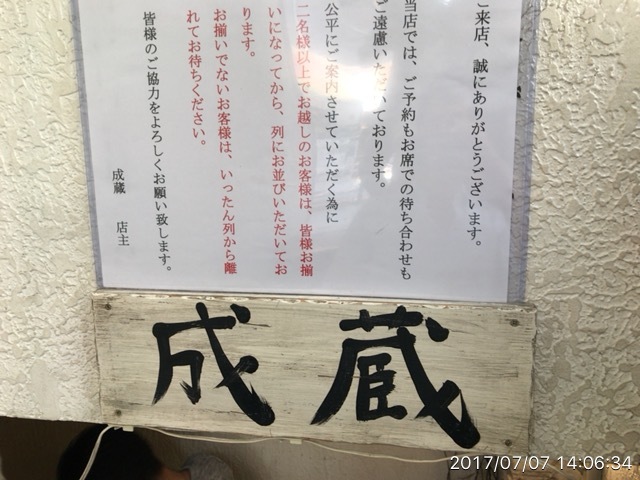 ご来店、誠にありがとうございます。
当店では、ご予約もお席での待ち合わせも
ご遠慮いただいております。
公平にご案内させていただく為に
二名様以上でお越しのお客様は、皆様お揃
いになってから、列にお並びいただいてお
ります。
お揃いでないお客様は、いったん列から離
れてお待ちください。
皆様のご協力をよろしくお願い致します。
成蔵 店主
成蔵
2017/07/07 14:06:34